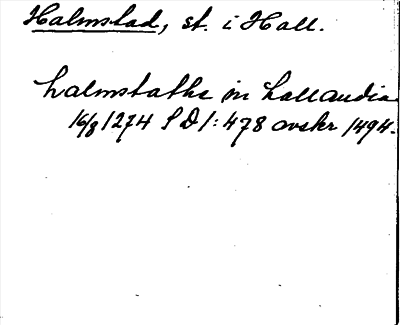 Halmstad, st. i Hall.
halmstaths in hallandia
16/8 1274 SD 1:478 avskr 1494.